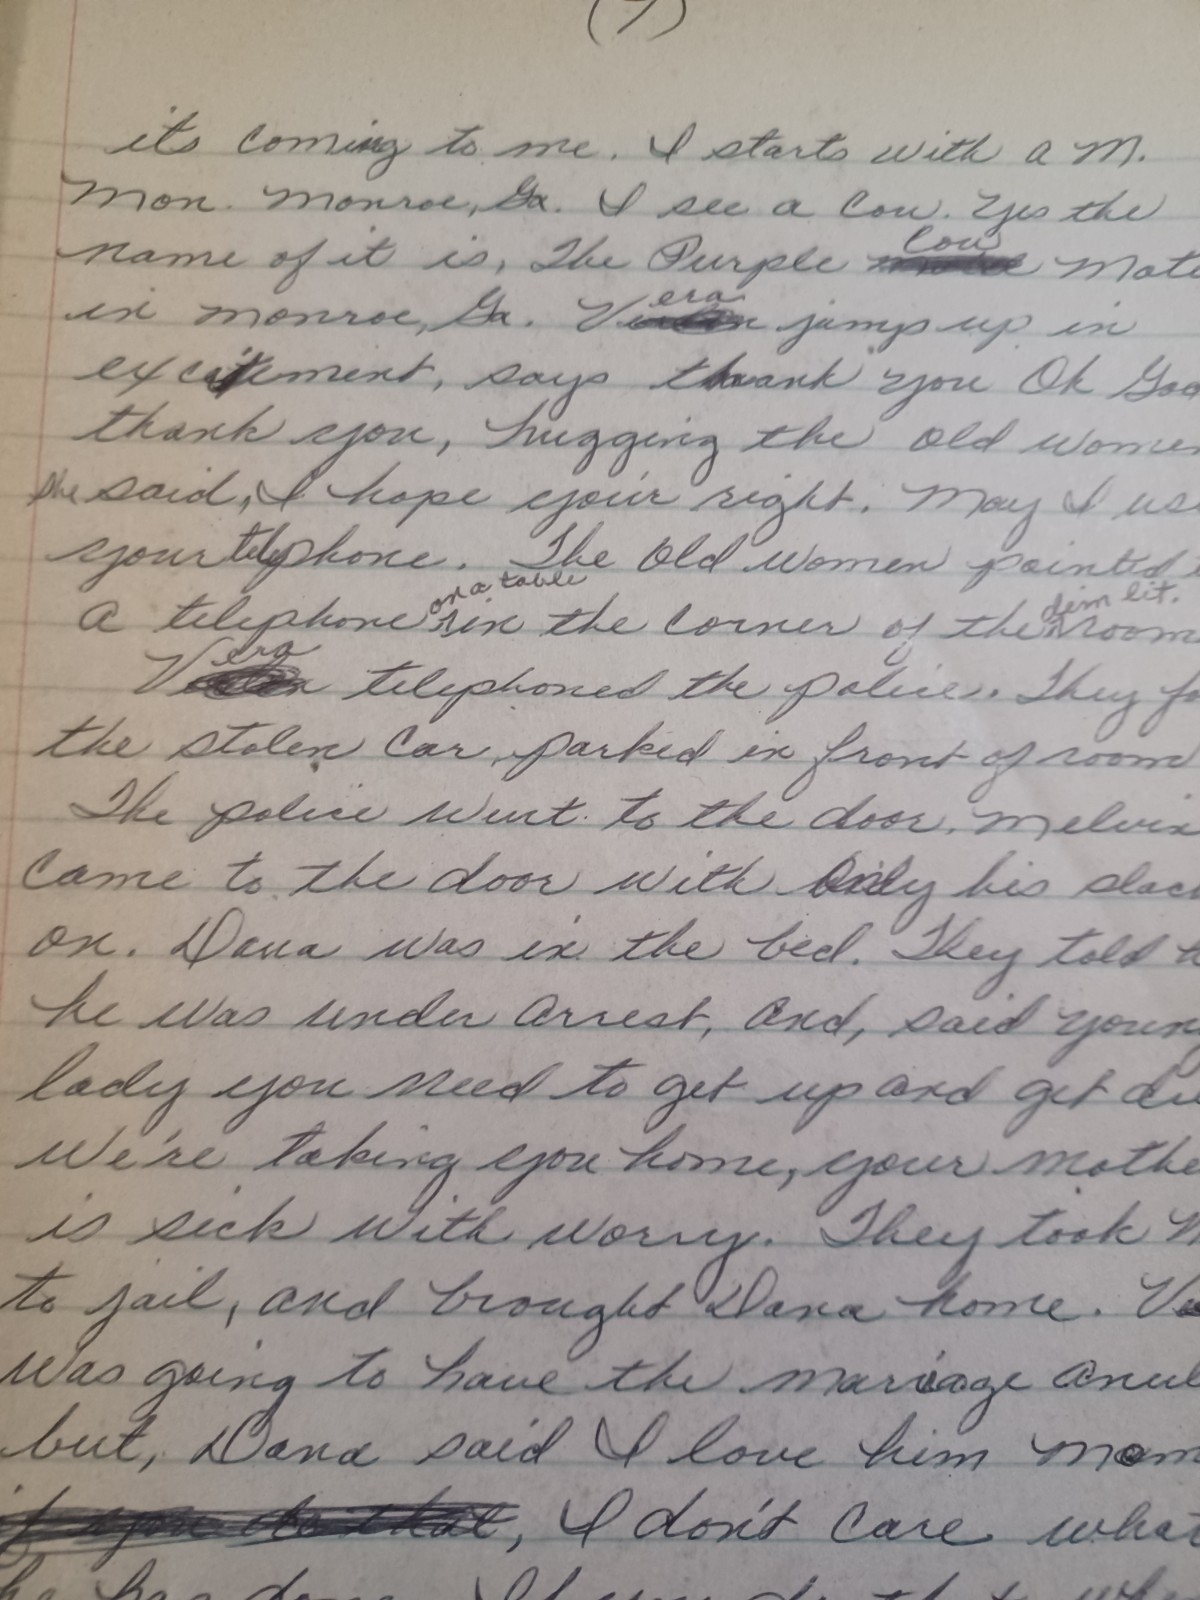 (7)
its coming to me. I starts with a M.
Mon. Monroe, Ga. I see a Cow. Yes the
name of it is, The Purple Cow Mote
in Monroe, Ga. Vera jumps up in
excitement, says thank you Oh God
thank you, hugging the old women
She said, I hope you'r right. May I us
your telephone. The Old women pointed
a telephone on a table in the corner of the dim lit. room
Vera telephoned the police. They fo
the stolen Car, parked in front of room
The police went to the door. Melvin
Came to the door with Only his slac
on. Dana was in the bed. They told
he was under arrest, and, said young
lady you need to get up and get dre
We're taking you home, your mothe
is sick with worry. They took M
to jail, and brought Dana home. Ve
was going to have the marriage anul
but, Dana said I love him Mom
if you do that, I don't Care what
he has done. If you do that